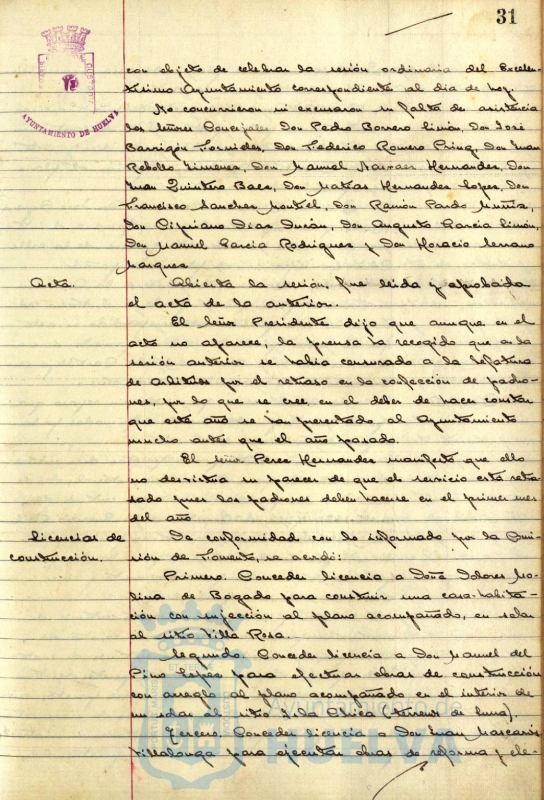 31
AYUNTAMIENTO DE HUELVA
con objeto de celebrar la sesión ordinaria del Excelen-
tísimo Ayuntamiento correspondiente al día de hoy.
No concurrieron ni excusaron su falta de asistencia
los Señores Concejales Don Pedro Borrero Limón, Don José
Barrigón Fornieles, Don Federico Romero Prinq, Don Juan
Rebollo Jimenez, Don Manuel Narvaez Hernandez, Don
Juan Quintero Baez, Don Matias Hernandez Lopez, Don
Francisco Sanchez Montiel, Don Ramón Pardo Muñiz,
Don Cipriano Diaz Durán, Don Augusto Garcia Limón,
Don Manuel Garcia Rodriguez y Don Horacio Serrano
Marquez
Acta. Abierta la sesión, fue leida y aprobada
el acta de la anterior.
El Señor Presidente dijo que aunque en el
acta no aparece, la prensa ha recogido que en la
sesión anterior se habia censurado a la Jefatura
de Arbitrios por el retraso en la confección de padro-
nes, por lo que se cree en el deber de hacer constar
que este año se han presentado al Ayuntamiento
mucho antes que el año pasado.
El Señor Perez Hernandez manifestó que ello
no desvirtua su parecer de que el servicio está retra-
sado pues los padrones deben hacerse en el primer mes
del año
Licencias de construcción. De conformidad con lo informado por la Comi-
sión de Fomento, se acordó:
Primero. Conceder licencia a Doña Dolores Mo-
lina de Bogado para construir una casa-habita-
ción con sujección al plano acompañado, en solar
al sitio Villa Rosa.
Segundo. Conceder licencia a Don Manuel del
Pino Lopez para efectuar obras de construcción
con arreglo al plano acompañado en el interior de
un solar al sitio Isla Chica (terrenos de Luna).
Tercero. Conceder licencia a Don Juan Mascarós
Villalonga para ejecutar obras de reforma y ele-
Ayuntamiento de
HUELVA